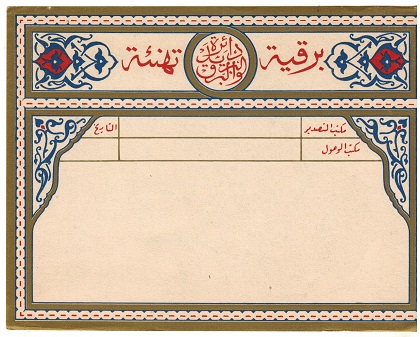 برقية
دائرة البريد والبرق
تهنئة
مكتب التصدير
التاريخ
مكتب الوصول